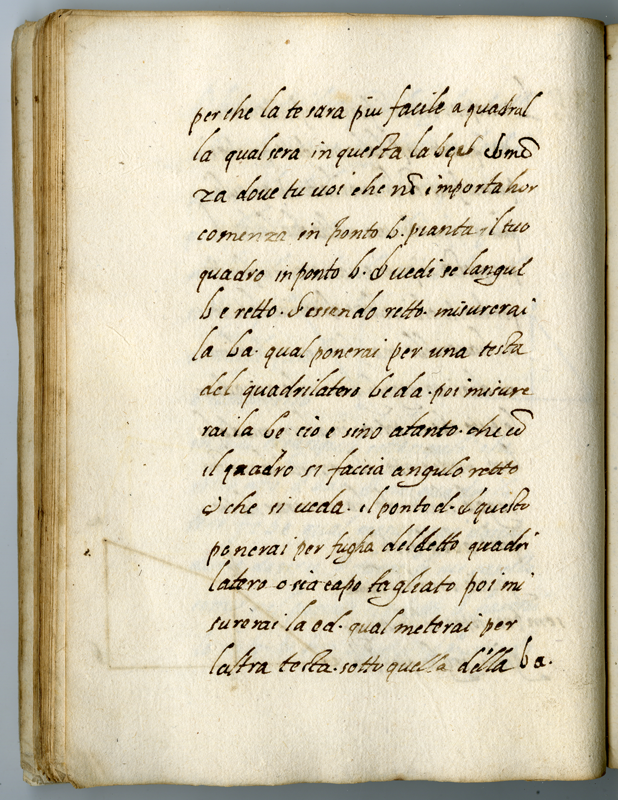 perche la te sara piu facile a quadral
la qual sera in questa la beqd comē
za dove tu voi che nō importa hor
comenza in ponto b. pianta il tuo
quadro in ponto b. & vedi se langul
b e retto. & essendo retto. misurerai
la ba. qual ponerai per una testa
del quadrilatero beda. poi misure
rai la be cioe sino atanto. che cō
il quadro si faccia angulo retto
& che si veda. il ponto d. & questo
ponerai per fugha deldetto quadri
latero o sia capo tagliato poi mi
surerai la ed. qual meterai per
laltra testa. sotto quella della ba.